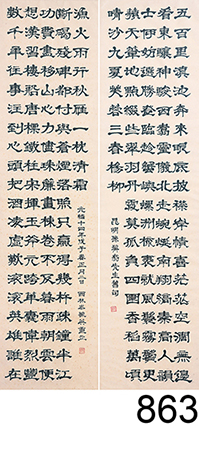 五百里滇池奔來眼底披襟岸幘喜茫茫空闊無邊
看東驤神駿西翥靈儀北走蜿蜒南翔縞素高人韻
士何妨選勝登臨趁蟹嶼螺洲梳裹就風鬟霧鬢更
蘋天葦地點綴些翠羽丹霞莫孤負四圍香稻萬頃
晴沙九夏芙蓉三春楊柳
昆明孫髯翁先生舊句
數千年往事注到心頭把酒凌虛歎滾滾英雄誰在
想漢習樓船唐標鐵柱宋揮玉斧元跨革囊偉烈豐
功費盡移山心力儘珠簾畫棟卷不及暮雨朝雲便
斷碣殘碑都付與蒼煙落照只贏得幾杵疏鐘半江
漁火兩行秋雁一枕清霜
光緒十四年戊子春正月
863